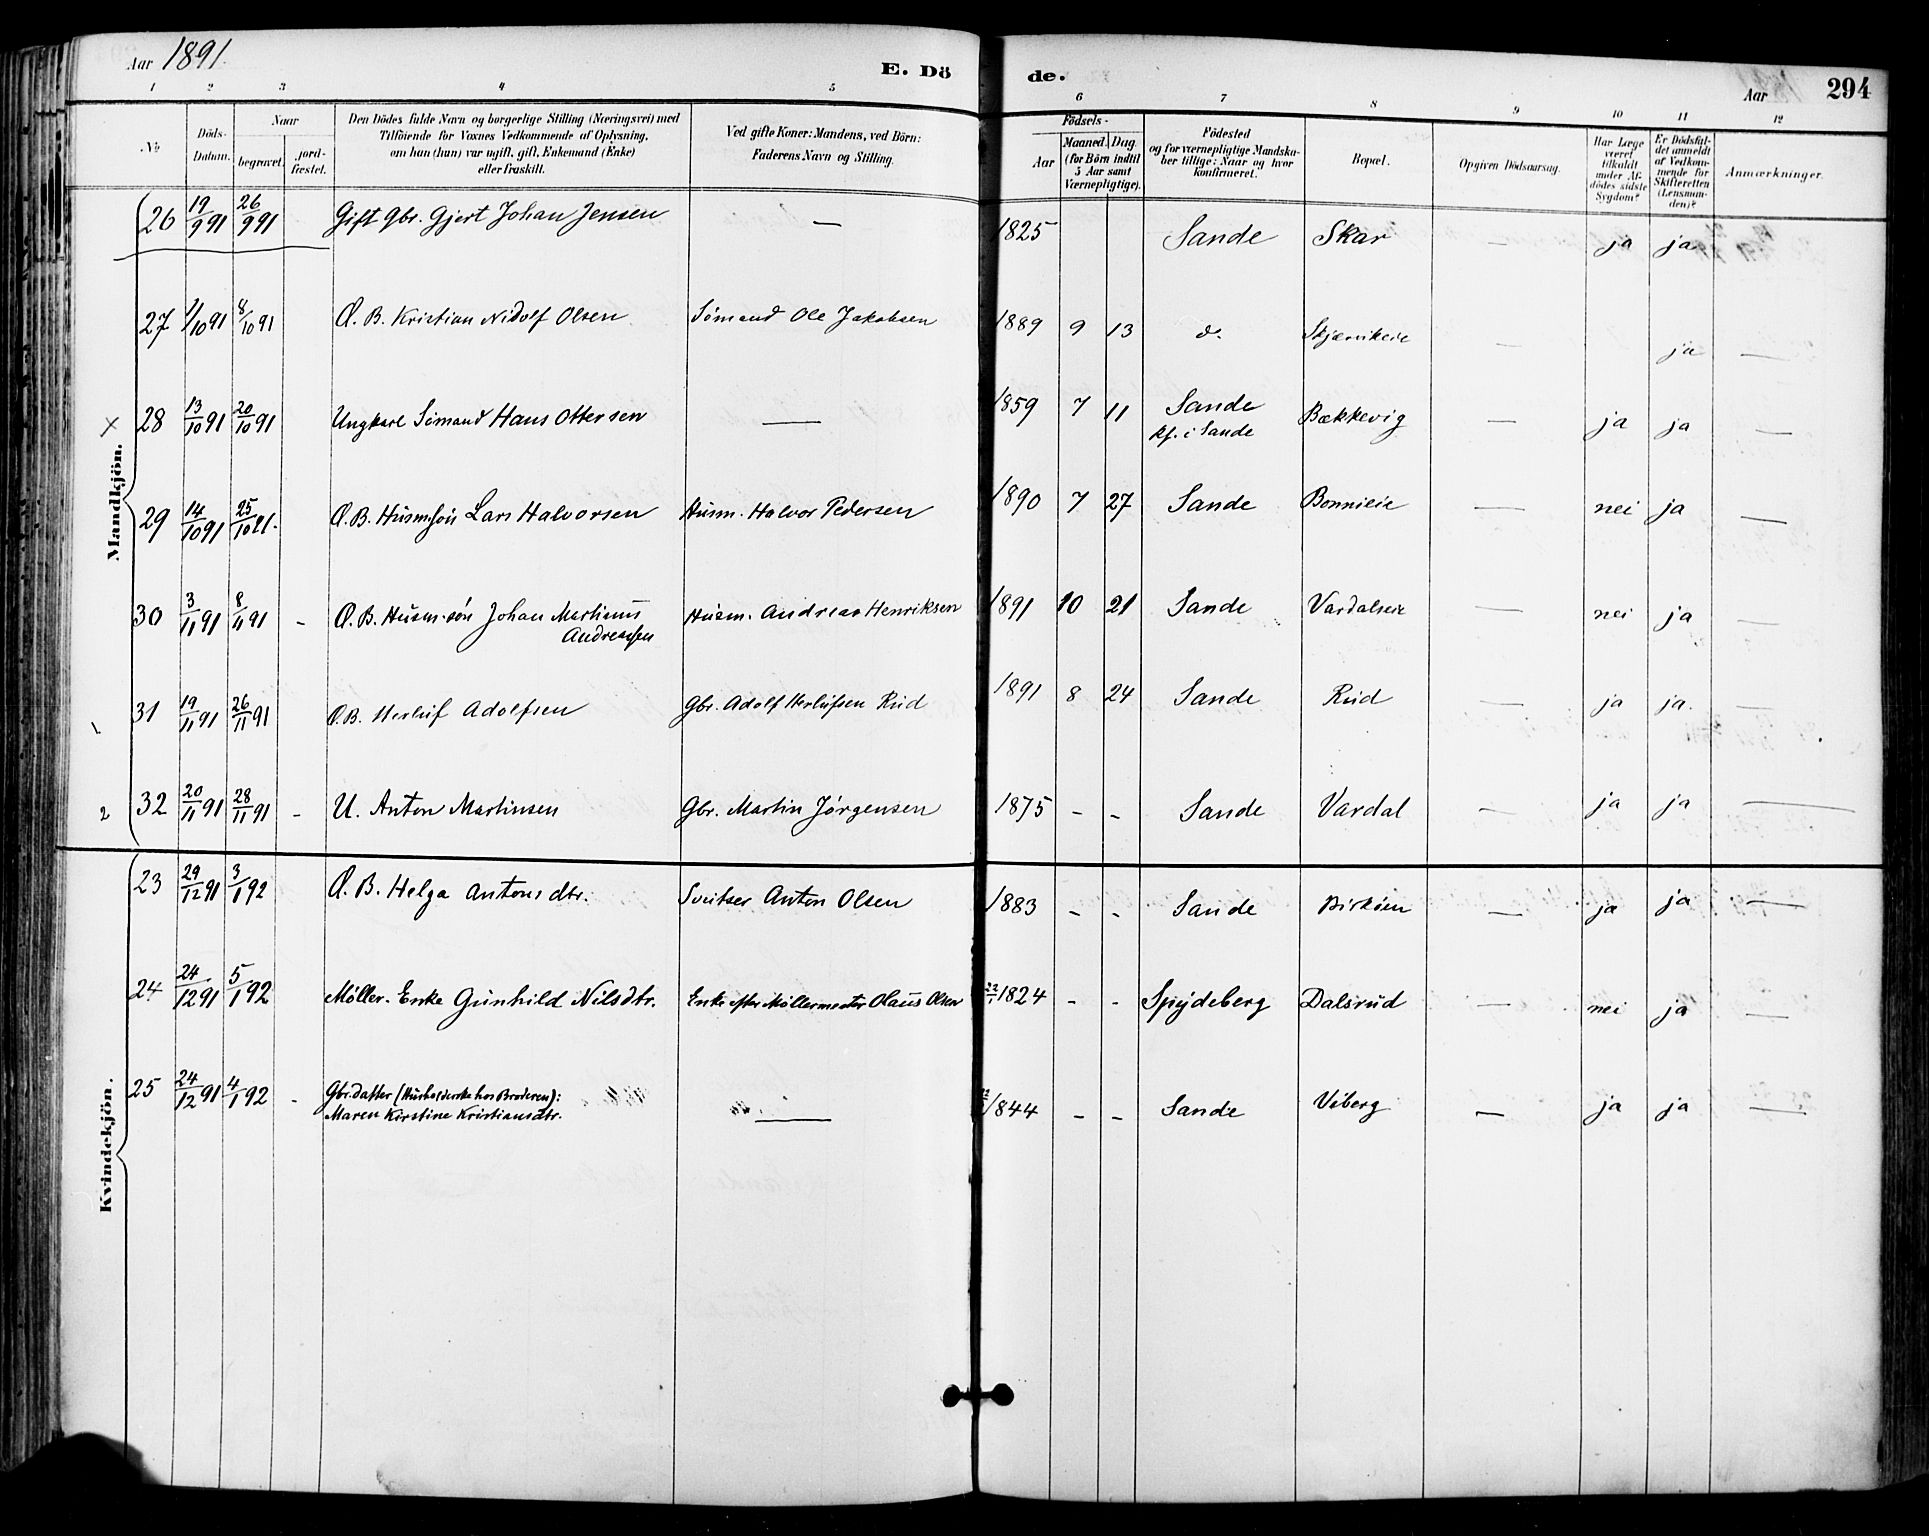 Aar 1891.
E. Dö de.
Aar 294
1 2 3 4 5 6 7 8 9 10 11 12
No
Döds-Datum.
Naar
begravet.
jord-fæstet.
Den Dödes fulde Navn og borgerlige Stilling (Næringsvei) med
Tilföiende for Voxnes Vedkommende af Oplysning,
om han (hun) var ugift, gift, Enkemand (Enke)
eller fraskilt.
Ved gifte Koner: Mandens, ved Börn:
Faderens Navn og Stilling.
Födsels-
Aar
Maaned. Dag.
(for Börn indtil
5 Aar samt
Værnepligtige).
Födested
og for værnepligtige Mandska-
ber tillige: Naar og hvor
konfirmeret.
Bopæl.
Opgiven Dödsaarsag.
Har Læge
været
tilkaldt
under Af-
dödes sidste
Sygdom?
Er Dödsfal-
det anmeldt
af Vedkom-
mende for
Skifteretten
(Lensman-
den)?
Anmærkninger.
Mandkjön.
26 19/9 91 26/9 91 Gift Gbr. Gjert Johan Jensen — 1825 Sande Skar — ja ja
27 1/10 91 8/10 91 Æ. B. Kristian Nidolf Olsen Sømand Ole Jakobsen 1889 9 13 d. Skjærvikeie — ja —
28 13/10 91 20/10 91 Ungkarl Sømand Hans Ottersen — 1859 7 11 Sande Bækkevig — ja ja —
kf. i Sande
29 14/10 91 25/10 91. Æ. B. Husmsøn Lars Halvorsen Husm. Halvor Pedersen 1890 7 27 Sande Bonnieie — nei ja —
30 3/11 91 8/11 91 - Æ. B. Husm. søn Johan Martinus Husm. Andreas Henriksen 1891 10 21 Sande Vardalseie — nei ja —
Andreassen
31 19/11 91 26/11 91 Æ. B. Herluf Adolfsen Gbr. Adolf Herlufsen Rud 1891 8 24 Sande Rud — ja ja. —
32 20/11 91 28/11 91 - U. Anton Martinsen Gbr. Martin Jørgensen 1875 - - Sande Vardal — ja ja —
Kvindekjön.
23 29/12 91 3/1 92 Æ. B. Helga Antonsdtr. Sveitser Anton Olsen 1883 - - Sande Birkøen — ja ja —
24 24/12 91 5/1 92 Møller. Enke Gunhild Nilsdtr. Enke efter Møllermester Olaus Olsen 22/1 1824 - - Spydeberg Dalsrud — nei ja —
25 24/12 91 4/1 92 - Gbr.datter (Husholderske hos Broderen): — 1844 - - Sande Viberg — ja ja —
Maren Kirstine Kristiansdtr.